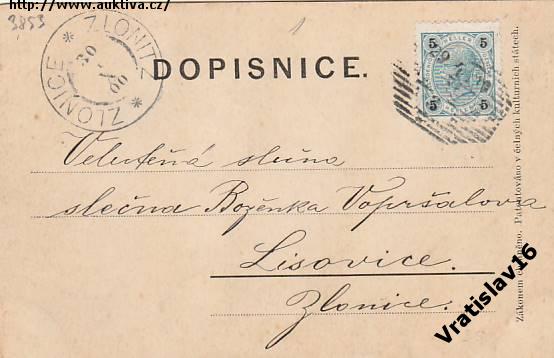 http://www.auktiva.cz/
3853
ZLONITZ
ZLONICE
DOPISNICE.
5 5
5 5
Velectěná slečna
slečna Boženka Vopršalova
Lisovice.
Zlonice.
Zákonem chráněno. Patentováno v čelných kulturních státech.
Vratislav16